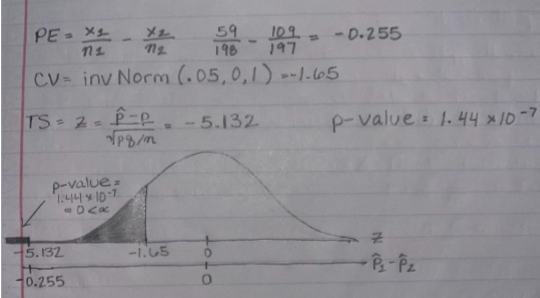 PE = x₁/n₁ - x₂/n₂ 59/198 - 109/197 = -0.255
CV = invNorm (.05,0,1) = -1.65
TS = z = p̂-p/√pq/n = -5.132 p-value = 1.44 ×10⁻⁷
p-value =
1.44×10⁻⁷
=0<α
-5.132 -1.65 0 z
p̂₁-p̂₂
-0.255 0